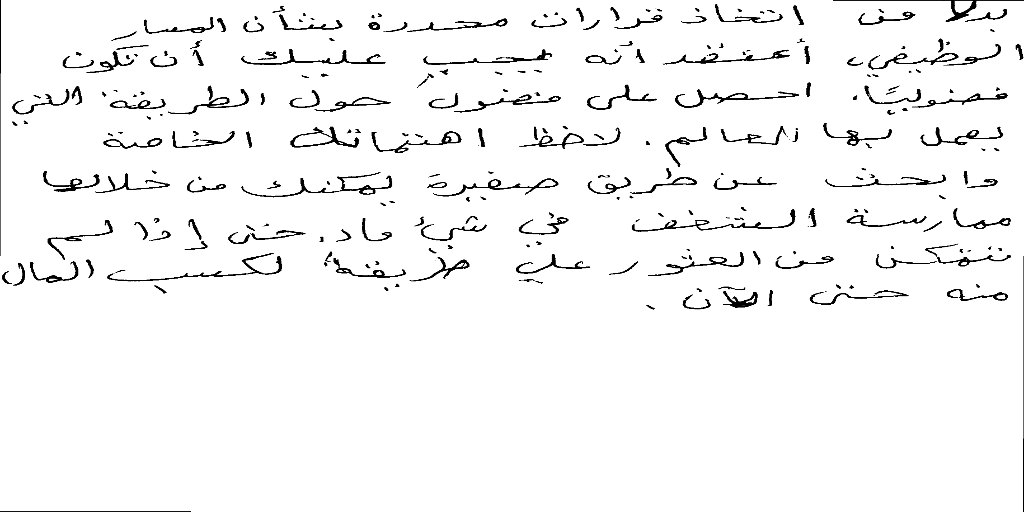 بدلا من اتخاذ قرارات محددة بشأن المسار
الوظيفي، أعتقد أنه يجب عليك أن تكون
فضوليًا. احصل على فضول حول الطريقة التي
يعمل بها العالم. لاحظ اهتماماتك الخاصة
وابحث عن طريق صغيرة يمكنك من خلالها
ممارسة الشغف في شيء ماد. حتى إذا لم
تتمكن من العثور على طريقة لكسب المال
منه حتى الآن.